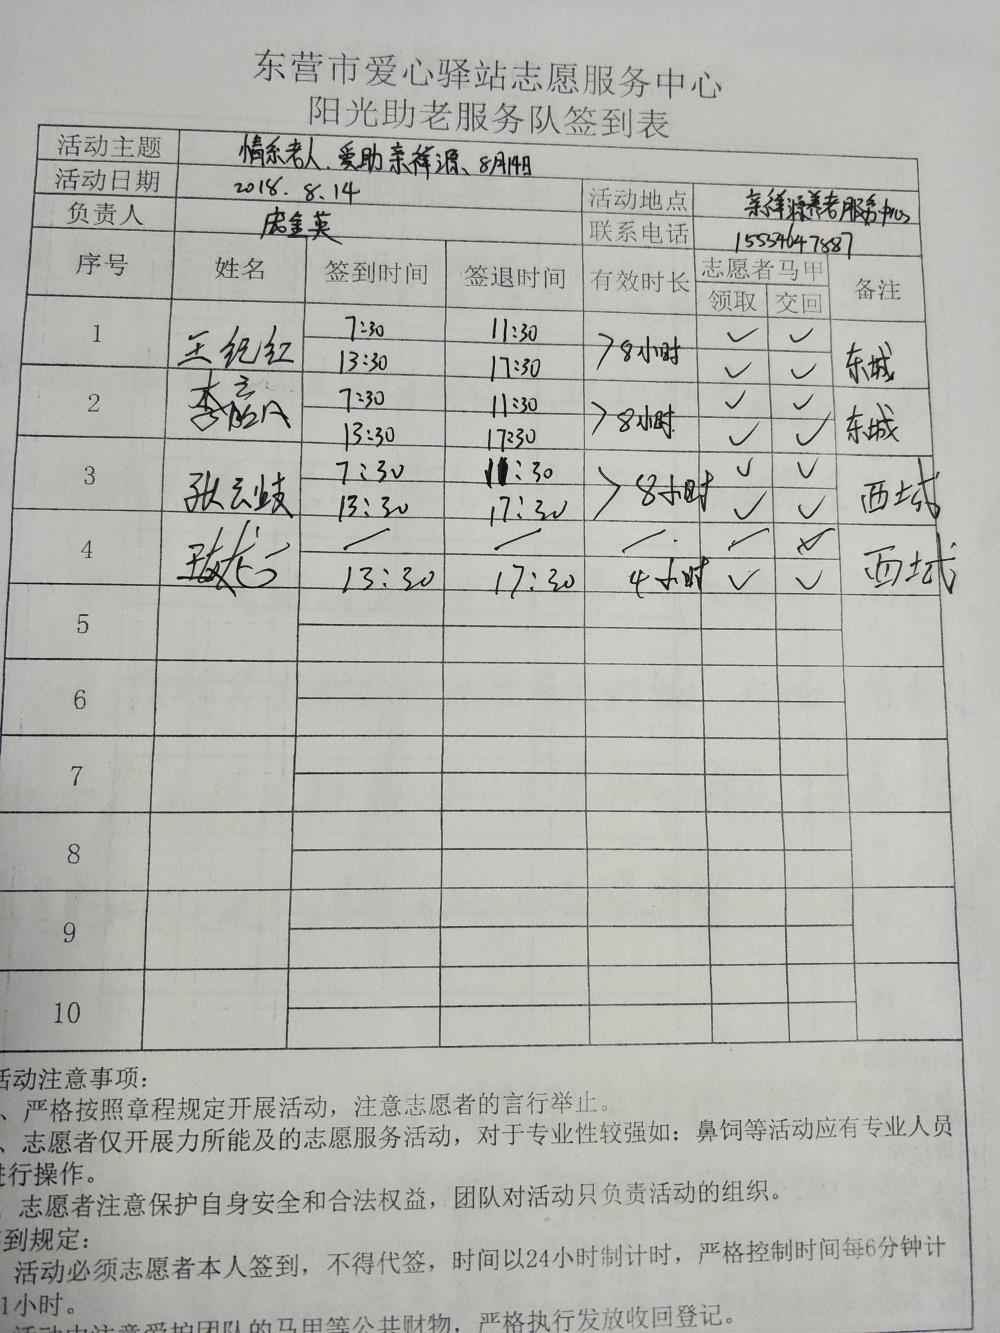 东营市爱心驿站志愿服务中心
阳光助老服务队签到表
活动主题 情系老人、爱助亲祥源、8月14日
活动日期 2018.8.14 活动地点 亲祥源养老服务中心
负责人 庞金英 联系电话
序号 姓名 签到时间 签退时间 有效时长 志愿者马甲 备注
领取 交回
1 王纪红 7:30 11:30 >8小时 ✓ ✓ 东城
13:30 17:30 ✓ ✓
2 7:30 11:30 >8小时 ✓ ✓ 东城
13:30 17:30 ✓ ✓
3 张云岐 7:30 11:30 >8小时 ✓ ✓ 西城
13:30 17:30 ✓ ✓
4 / / / 西城
13:30 17:30 4小时 ✓ ✓
5
6
7
8
9
10
活动注意事项：
、严格按照章程规定开展活动，注意志愿者的言行举止。
、志愿者仅开展力所能及的志愿服务活动，对于专业性较强如：鼻饲等活动应有专业人员
进行操作。
志愿者注意保护自身安全和合法权益，团队对活动只负责活动的组织。
到规定：
活动必须志愿者本人签到，不得代签，时间以24小时制计时，严格控制时间每6分钟计
1小时。
活动中注意爱护团队的马甲等公共财物，严格执行发放收回登记。